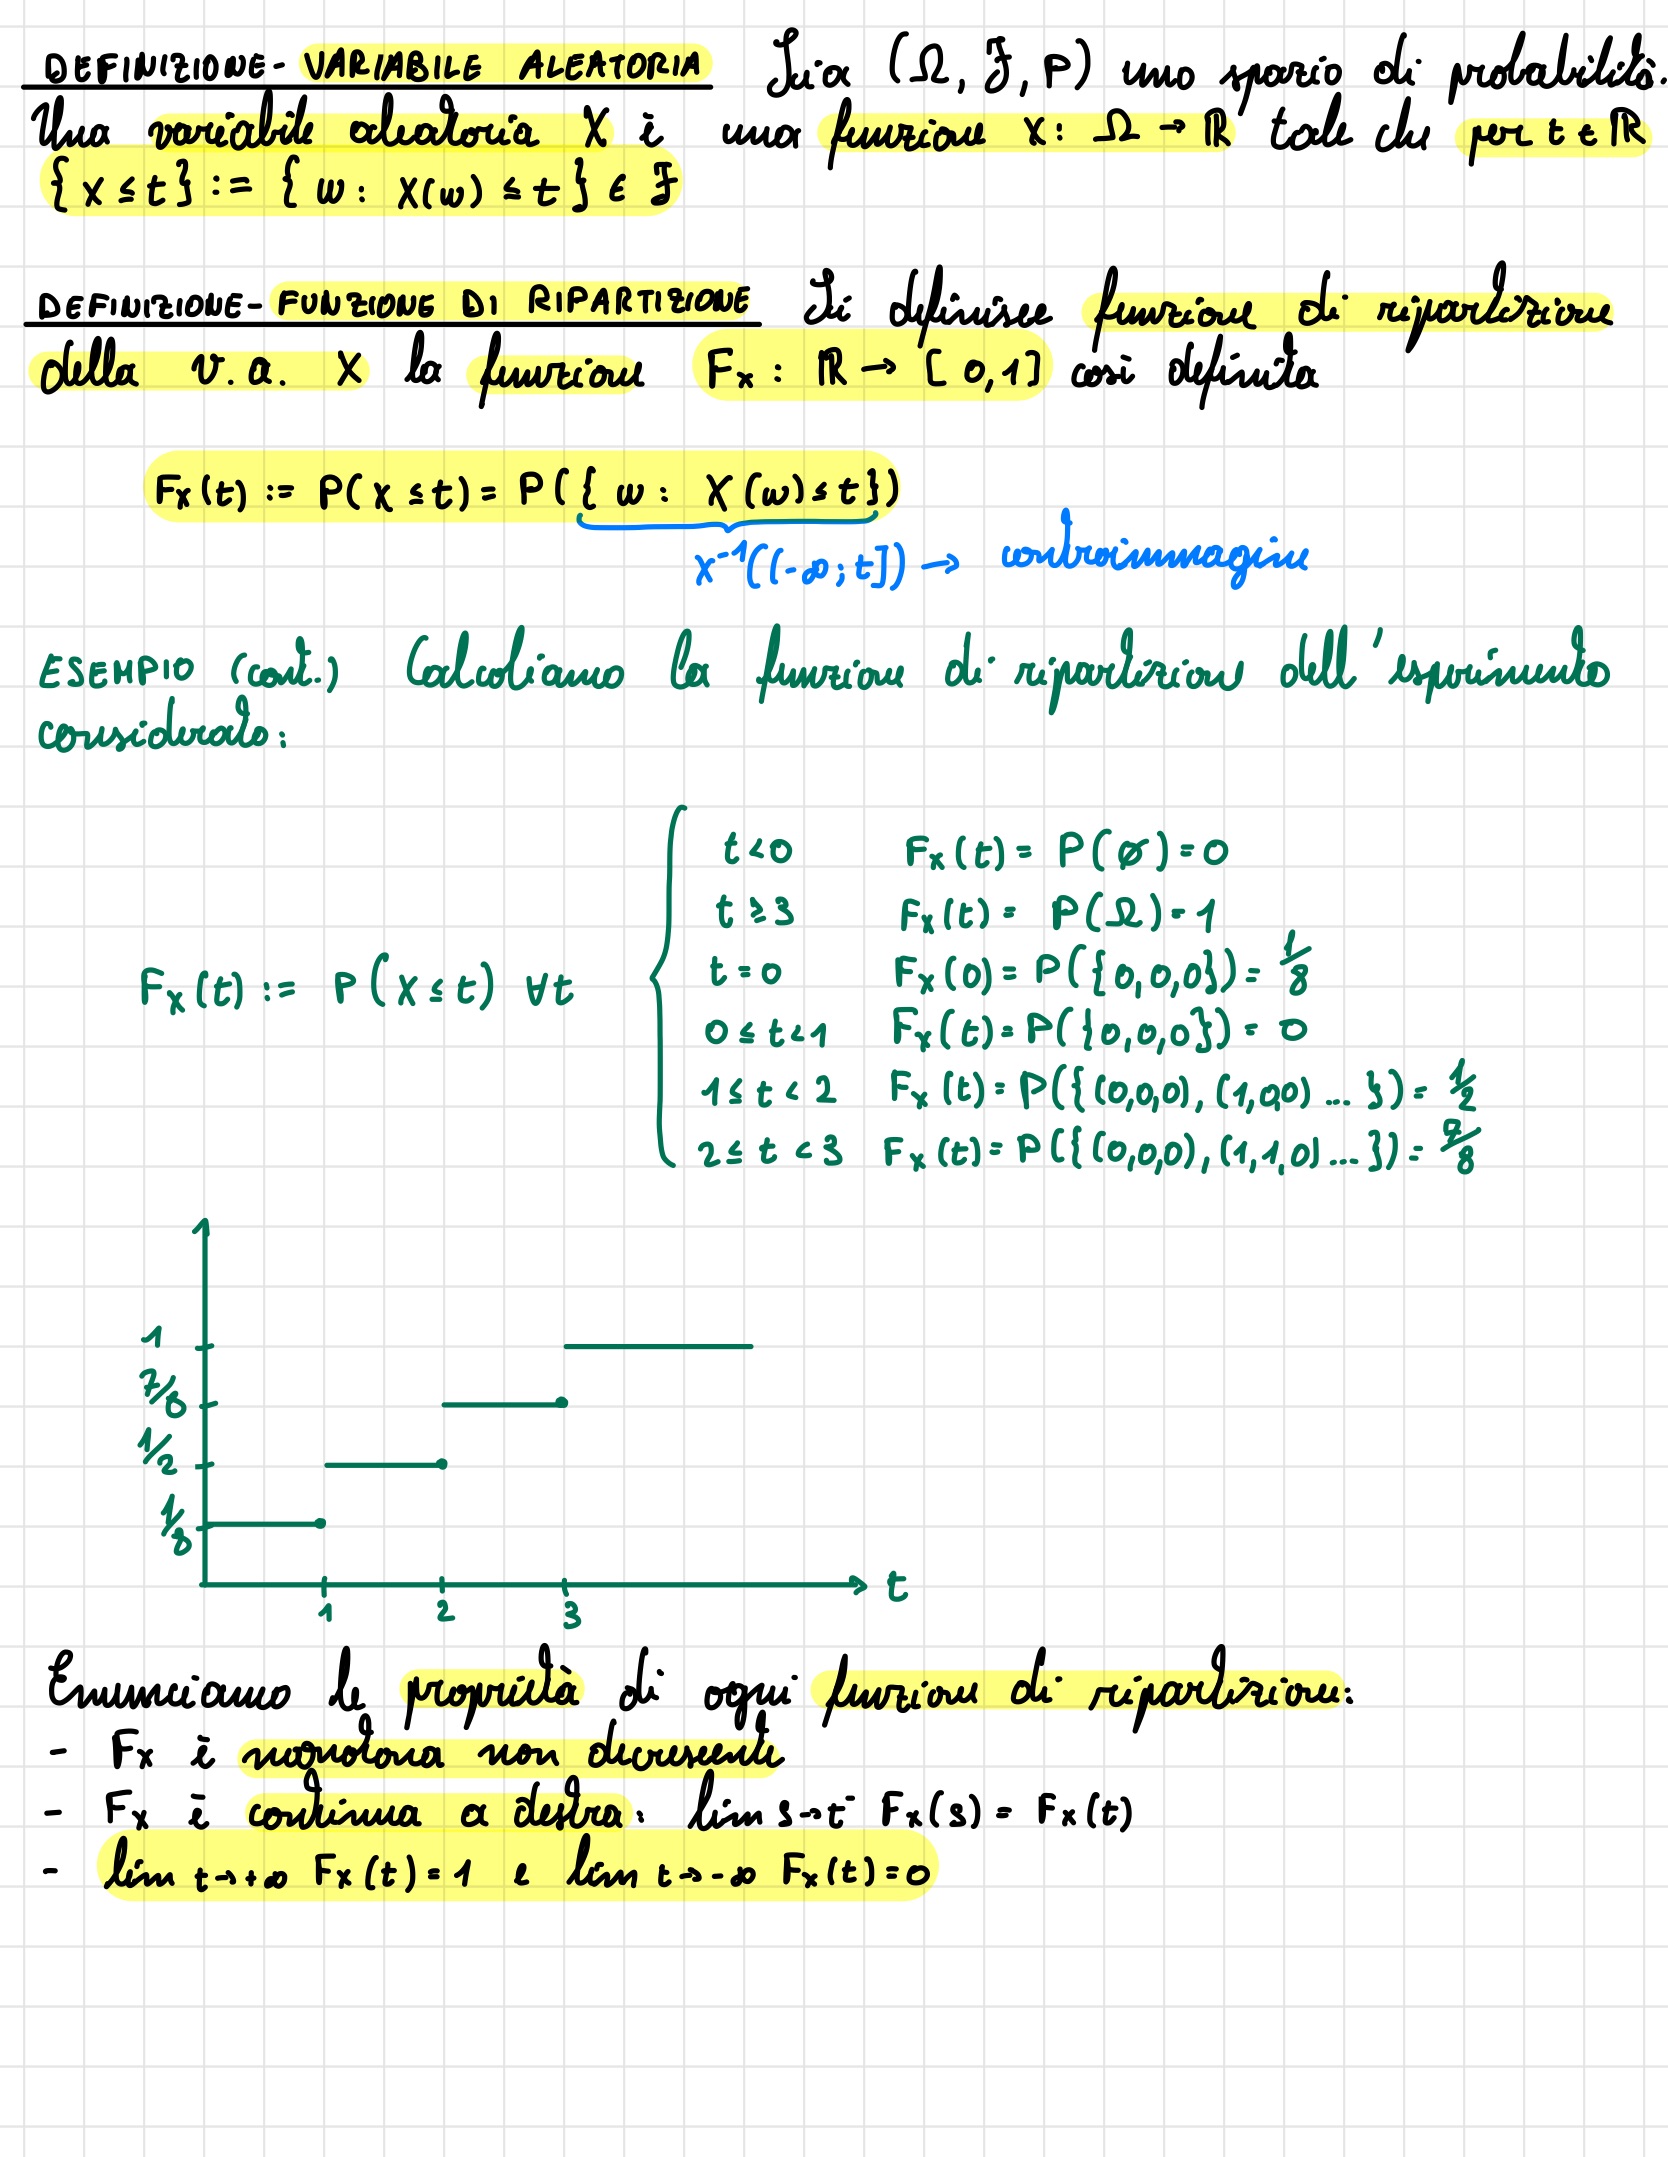 DEFINIZIONE- VARIABILE ALEATORIA Sia (Ω, F, P) uno spazio di probabilità.
Una variabile aleatoria X è una funzione X: Ω → ℝ tale che per t ∈ ℝ
{X ≤ t} := {w: X(w) ≤ t} ∈ F
DEFINIZIONE- FUNZIONE DI RIPARTIZIONE Si definisce funzione di ripartizione
della v.a. X la funzione Fx : ℝ → [0,1] così definita
Fx(t) := P(X ≤ t) = P({w: X(w) ≤ t})
X⁻¹((-∞; t]) → controimmagine
ESEMPIO (cont.) Calcoliamo la funzione di ripartizione dell'esperimento
considerato:
t < 0 Fx(t) = P(∅) = 0
t ≥ 3 Fx(t) = P(Ω) = 1
t = 0 Fx(0) = P({0,0,0}) = 1/8
Fx(t) := P(X ≤ t) ∀t
0 ≤ t < 1 Fx(t) = P({0,0,0}) = 0
1 ≤ t < 2 Fx(t) = P({(0,0,0), (1,0,0) ... }) = 1/2
2 ≤ t < 3 Fx(t) = P({(0,0,0), (1,1,0) ... }) = 7/8
1
7/8
1/2
1/8
1 2 3 t
Enunciamo le proprietà di ogni funzione di ripartizione:
- Fx è monotona non decrescente
- Fx è continua a destra: lim s→t⁻ Fx(s) = Fx(t)
- lim t→+∞ Fx(t) = 1 e lim t→-∞ Fx(t) = 0